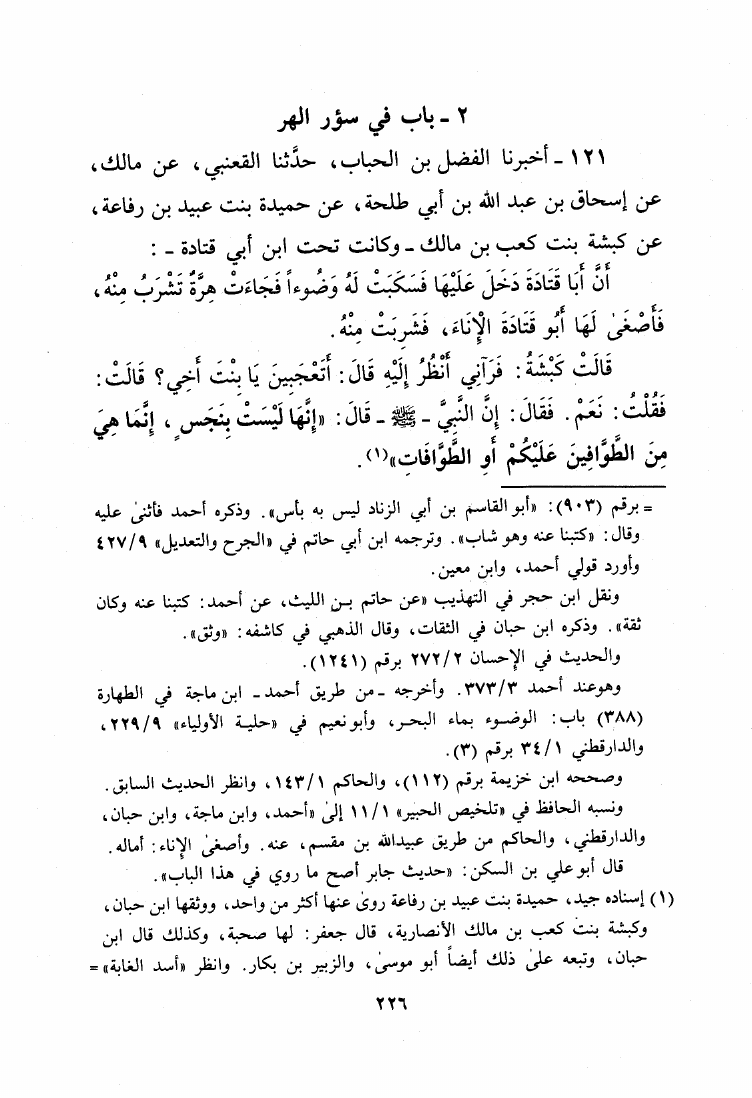 ٢ ـ باب في سؤر الهر
١٢١ ـ أخبرنا الفضل بن الحباب، حدَّثنا القعنبي، عن مالك،
عن إسحاق بن عبد الله بن أبي طلحة، عن حميدة بنت عبيد بن رفاعة،
عن كبشة بنت كعب بن مالك ـ وكانت تحت ابن أبي قتادة ـ :
أَنَّ أَبَا قَتَادَةَ دَخَلَ عَلَيْهَا فَسَكَبَتْ لَهُ وَضُوءاً فَجَاءَتْ هِرَّةٌ تَشْرَبُ مِنْهُ،
فَأَصْغَىٰ لَهَا أَبُو قَتَادَةَ الْإِنَاءَ، فَشَرِبَتْ مِنْهُ.
قَالَتْ كَبْشَةُ: فَرَآنِي أَنْظُرُ إِلَيْهِ قَالَ: أَتَعْجَبِينَ يَا بِنْتَ أَخِي؟ قَالَتْ:
فَقُلْتُ: نَعَمْ. فَقَالَ: إِنَّ النَّبِيَّ ـ ﷺ ـ قَالَ: «إِنَّهَا لَيْسَتْ بِنَجَسٍ، إِنَّمَا هِيَ
مِنَ الطَّوَّافِينَ عَلَيْكُمْ أَوِ الطَّوَّافَاتِ»(١).
= برقم (٩٠٣): «أبو القاسم بن أبي الزناد ليس به بأس». وذكره أحمد فأثنىٰ عليه
وقال: «كتبنا عنه وهو شاب». وترجمه ابن أبي حاتم في «الجرح والتعديل» ٤٢٧/٩
وأورد قولي أحمد، وابن معين.
ونقل ابن حجر في التهذيب «عن حاتم بن الليث، عن أحمد: كتبنا عنه وكان
ثقة». وذكره ابن حبان في الثقات، وقال الذهبي في كاشفه: «وثق».
والحديث في الإحسان ٢٧٢/٢ برقم (١٢٤١).
وهو عند أحمد ٣٧٣/٣. وأخرجه ـ من طريق أحمد ـ ابن ماجة في الطهارة
(٣٨٨) باب: الوضوء بماء البحر، وأبو نعيم في «حلية الأولياء» ٢٢٩/٩،
والدارقطني ٣٤/١ برقم (٣).
وصححه ابن خزيمة برقم (١١٢)، والحاكم ١٤٣/١، وانظر الحديث السابق.
ونسبه الحافظ في «تلخيص الحبير» ١١/١ إلىٰ «أحمد، وابن ماجة، وابن حبان،
والدارقطني، والحاكم من طريق عبيدالله بن مقسم، عنه. وأصغىٰ الإناء: أماله.
قال أبو علي بن السكن: «حديث جابر أصح ما روي في هذا الباب».
(١) إسناده جيد، حميدة بنت عبيد بن رفاعة روىٰ عنها أكثر من واحد، ووثقها ابن حبان،
وكبشة بنت كعب بن مالك الأنصارية، قال جعفر: لها صحبة، وكذلك قال ابن
حبان، وتبعه علىٰ ذلك أيضاً أبو موسىٰ، والزبير بن بكار. وانظر «أسد الغابة» =
٢٢٦